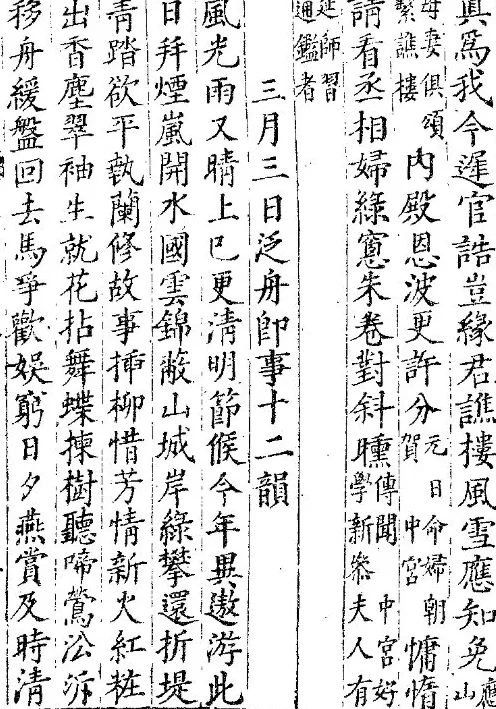 真爲我今遲官誥豈緣君譙樓風雪應知免應
山
母妻俱頌
繫譙樓
内殿恩波更許分元日命婦朝
賀中宮
慵惰
請看丞相婦綠窻朱卷對斜曛傳聞中宮好
學新叅夫人有
延師習
通鑑者
三月三日泛舟卽事十二韻
風光雨又晴上巳更清明節候今年異遨游此
日幷煙嵐開水國雲錦蔽山城岸綠攀還折堤
靑踏欲平執蘭修故事揷柳惜芳情新火紅粧
出香塵翠袖生就花拈舞蝶揀樹聽啼鶯㳂泝
移舟緩盤回去馬爭歡娱窮日夕燕賞及時清